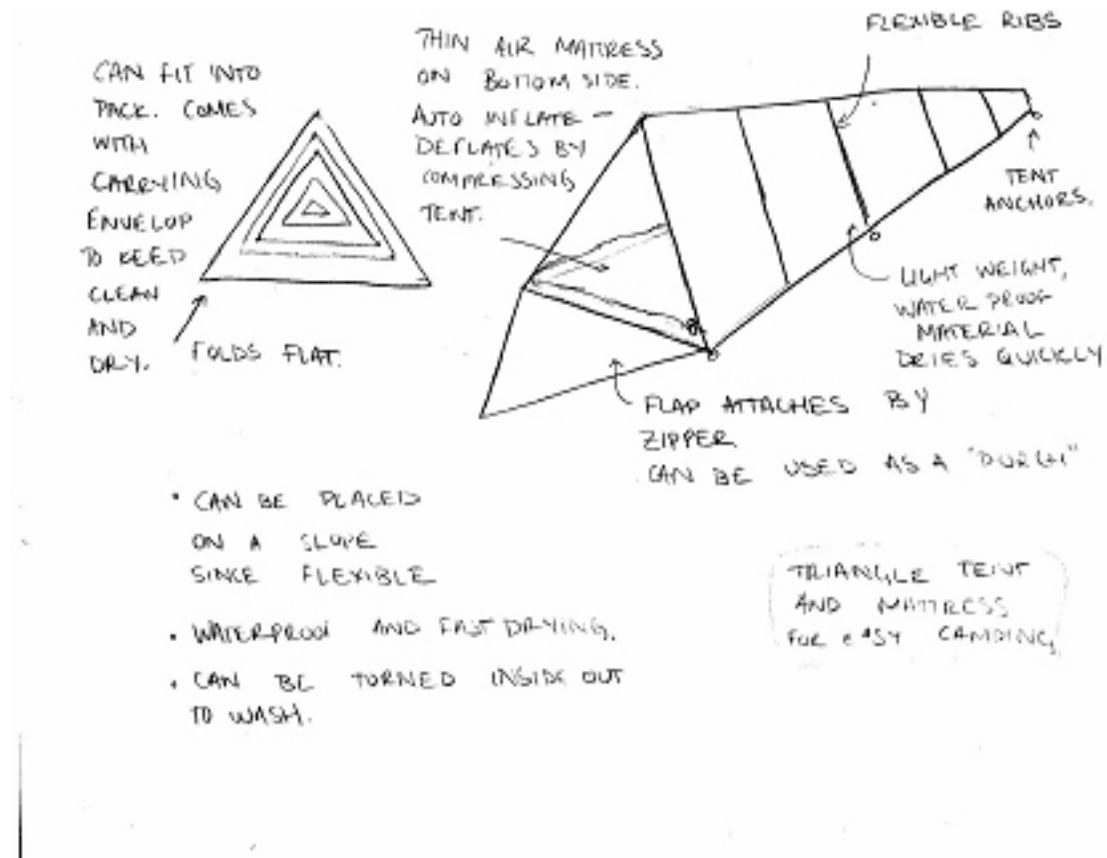 CAN FIT INTO
PACK. COMES
WITH
CARRYING
ENVELOP
TO KEED
CLEAN
AND
DRY.
FOLDS FLAT.
THIN AIR MATTRESS
ON BOTTOM SIDE.
AUTO INFLATE –
DEFLATES BY
COMPRESSING
TENT.
FLEXIBLE RIBS
TENT
ANCHORS.
LIGHT WEIGHT,
WATER PROOF
MATERIAL
DRIES QUICKLY
FLAP ATTACHES BY
ZIPPER.
CAN BE USED AS A "PORCH"
• CAN BE PLACED
ON A SLOPE
SINCE FLEXIBLE
• WATERPROOF AND FAST DRYING.
• CAN BE TURNED INSIDE OUT
TO WASH.
TRIANGLE TENT
AND MATTRESS
FOR EASY CAMPING